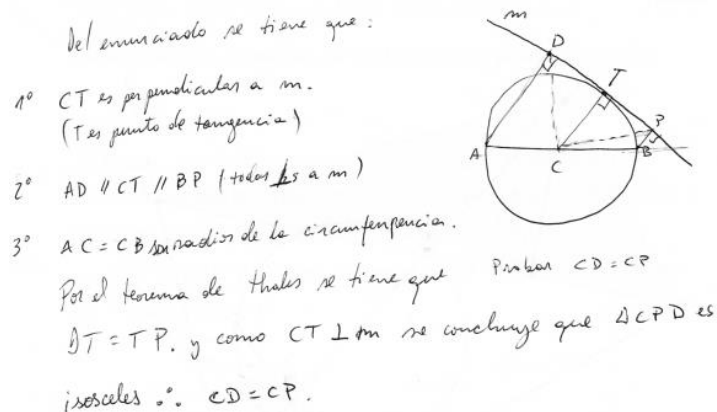 Del enunciado se tiene que:
1º CT es perpendicular a m.
(T es punto de tangencia)
2º AD // CT // BP (todas ⊥s a m)
3º AC = CB son radios de la circunferencia.
Por el teorema de thales se tiene que
DT = TP. y como CT ⊥ m se concluye que △CPD es
isósceles ∴ CD = CP.
m
D
T
P
A
C
B
Probar CD = CP